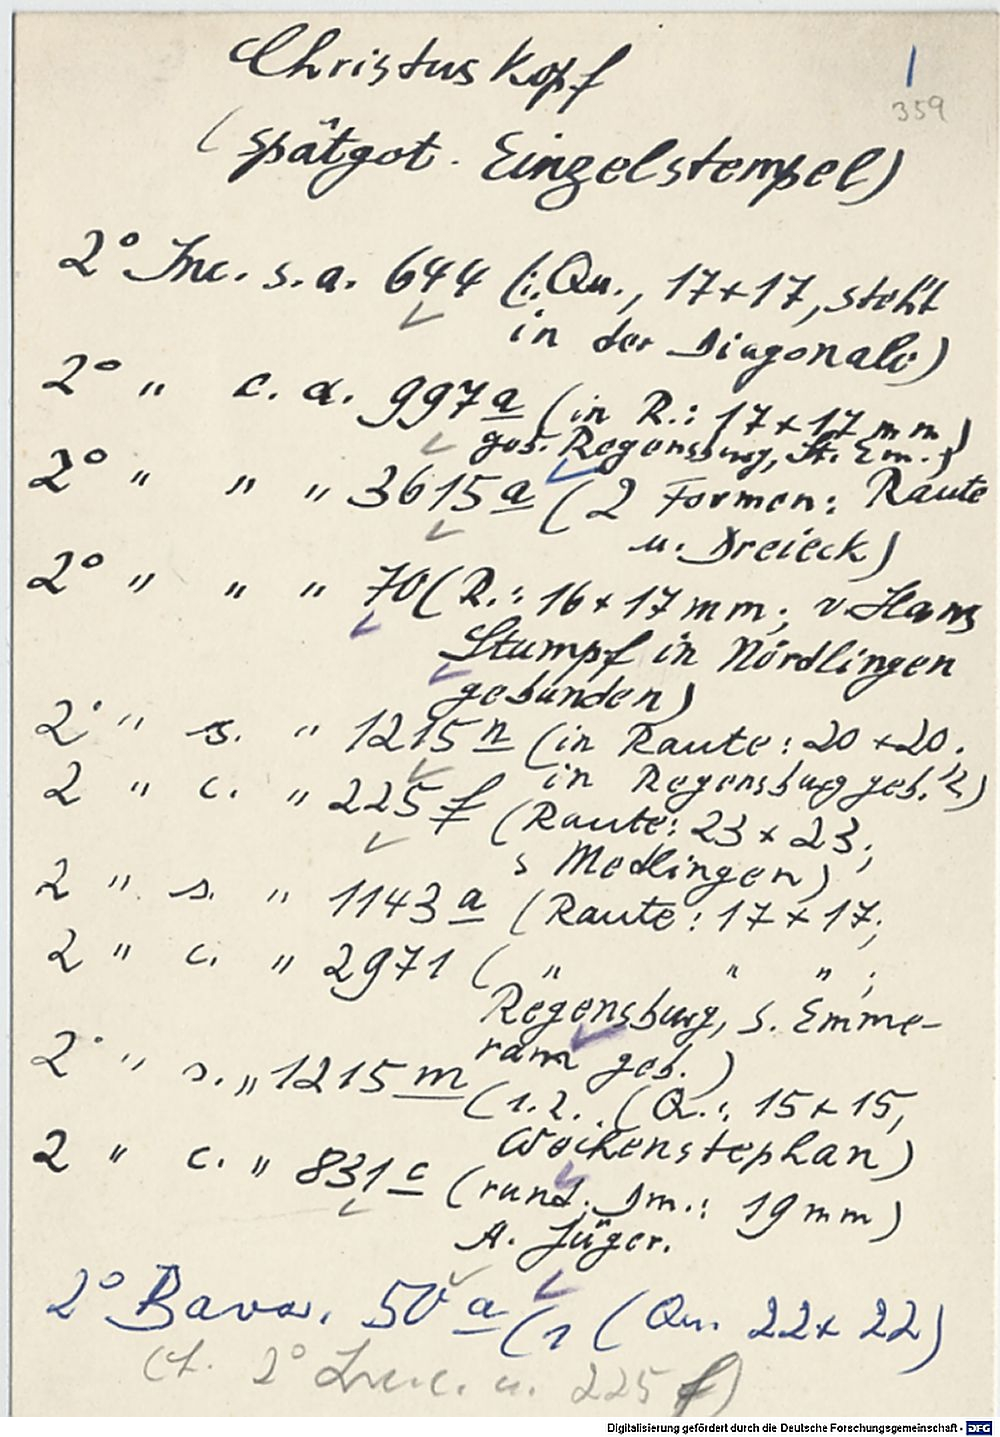 Christuskopf
1
359
(spätgot. Einzelstempel)
2° Inc. s.a. 644 (i. Qu., 17+17, steht
in der Diagonale)
2° " c. a. 997 a (in R.: 17+17 mm)
geb. Regensburg, St. Em.)
2° " " " 3615 a (2 Formen: Raute
u. Dreieck)
2° " " " 70 (R.: 16+17 mm; v. Hans
Stumpf in Nördlingen
gebunden)
2° " s. " 1215 n (in Raute: 20+20.
in Regensburg geb.)
2 " c. " 225 f (Raute: 23 x 23;
s Medlingen)
2 " s. " 1143 a (Raute: 17+17;
2 " c. " 2971 ( " " " ;
Regensburg, S. Emme-
ram geb.)
2° " s. " 1215 m (1.2. (Q.: 15+15,
Weihenstephan)
2 " c. " 831 c (rund. Dm.: 19 mm)
A. Jäger.
2° Bavar. 50 a (1 (Qu. 22x22)
(f. 2° Inc. 225 f)
Digitalisierung gefördert durch die Deutsche Forschungsgemeinschaft - DFG